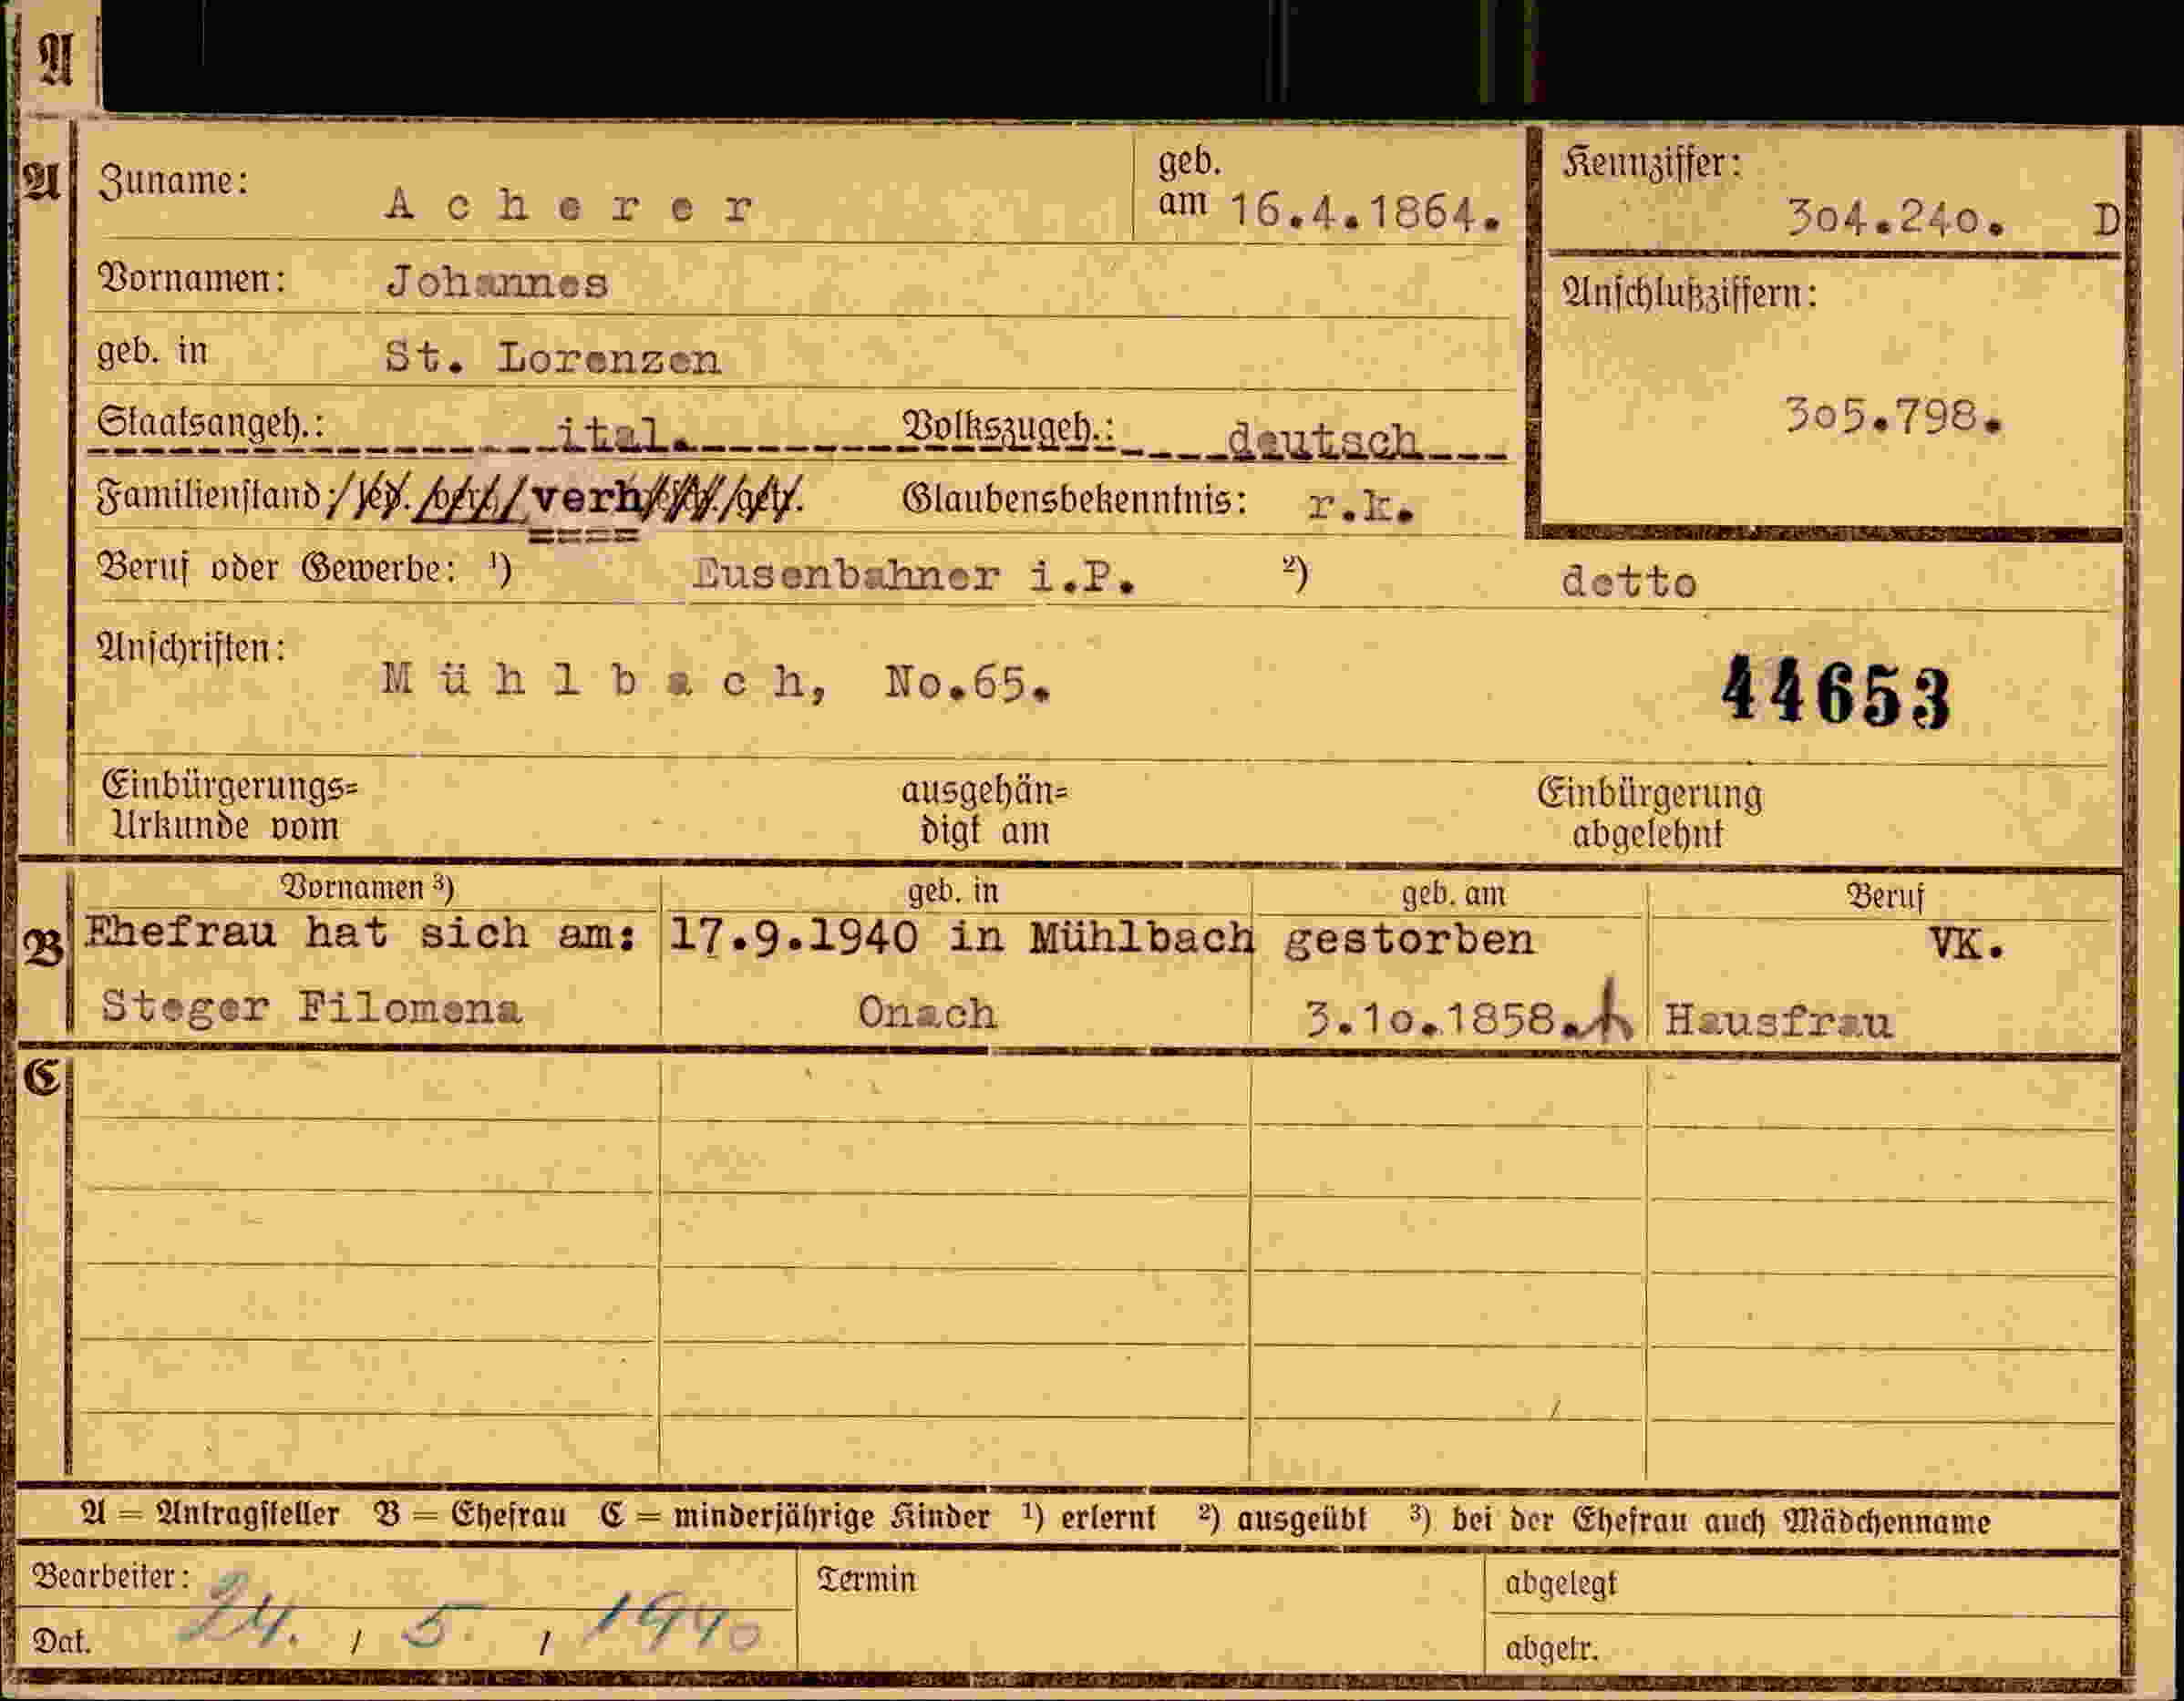 A
A Zuname: Acherer geb. am 16.4.1864. Kennziffer: 304.240. D
Vornamen: Johannes
Anschlußziffern:
geb. in St. Lorenzen
305.798.
Staatsangeh.: ital. Volkszugeh.: deutsch
Familienstand: led. verh. Glaubensbekenntnis: r.k.
Beruf oder Gewerbe: ¹) Eusenbahner i.P. ²) detto
Anschriften: Mühlbach, No.65.
44653
Einbürgerungs= ausgehän= Einbürgerung
Urkunde vom digt am abgelehnt
Vornamen ³) geb. in geb. am Beruf
B Ehefrau hat sich am: 17.9.1940 in Mühlbach gestorben VK.
Steger Filomena Onach 3.10.1858. Hausfrau
C
A = Antragsteller B = Ehefrau C = minderjährige Kinder ¹) erlernt ²) ausgeübt ³) bei der Ehefrau auch Mädchenname
Bearbeiter: Termin abgelegt
Dat. 24. / 5. / 1940 abgetr.